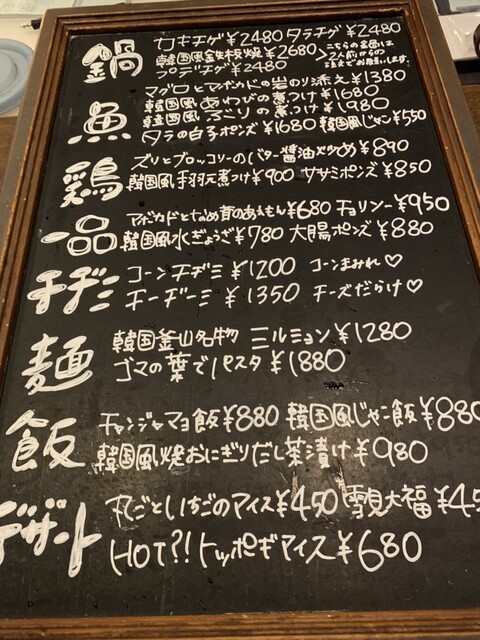 鍋
カキチゲ¥2480 タラチゲ¥2480
韓国風鉄板焼¥2680
プデチゲ¥2480
魚
マグロとアボカドの岩のり添え¥1380
韓国風あわびの煮つけ¥1680
韓国風ぶりの煮つけ¥1980
タラの白子ポンズ¥1680 韓国風じゃこ¥550
鶏
ズリとブロッコリーのバター醤油炒め¥890
韓国風手羽元煮つけ¥900 ササミポンズ¥850
一品
アボカドとなめ茸のあえもん¥680 チョリソー¥950
韓国風水ぎょうざ¥780 大腸ポンズ¥880
チヂミ
コーンチヂミ¥1200 コーンまみれ♡
チーヂーミ¥1350 チーズだらけ♡
麺
韓国釜山名物 ミルミョン¥1280
ゴマの葉でパスタ¥1880
飯
チャンジャマヨ飯¥880 韓国風じゃこ飯¥880
韓国風焼おにぎりだし茶漬け¥980
デザート
丸ごといちごのアイス¥450 雪見大福¥45
HOT?! トッポギアイス¥680